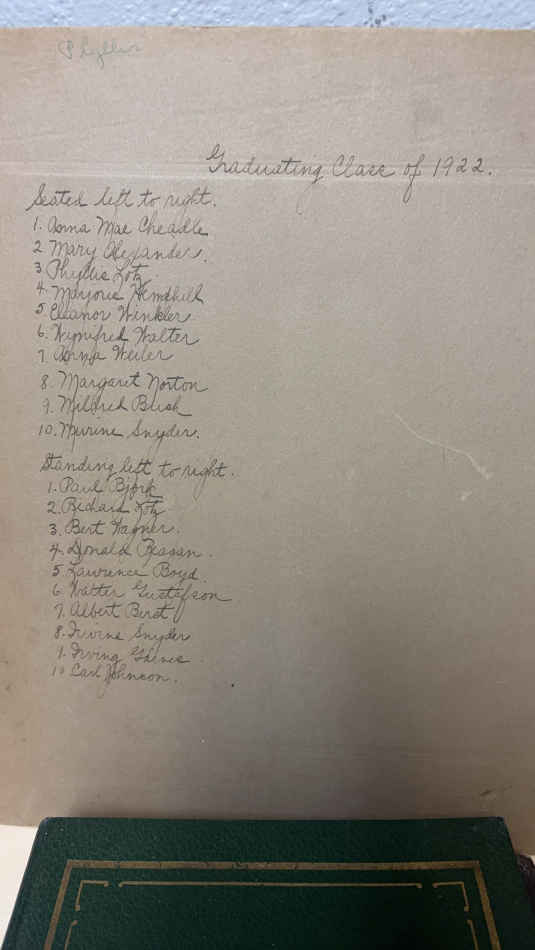 Phyllis
Graduating Class of 1922.
Seated left to right.
1. Anna Mae Cheadle
2 Mary Alexander.
3 Phyllis Lotz.
4. Marjorie Hemphill
5. Eleanor Winkler.
6. Wynifred Walter
7. Anna Weiler
8. Margaret Norton
9. Mildred Bush
10. Snyder.
Standing left to right.
1. Paul Bjork
2. Richard Lotz
3. Bert Wagner.
4. Donald
5 Lawrence Boyd.
6 Walter Gustafson
7. Albert
8. Irvine Snyder
9. Irving
10 Carl Johnson.